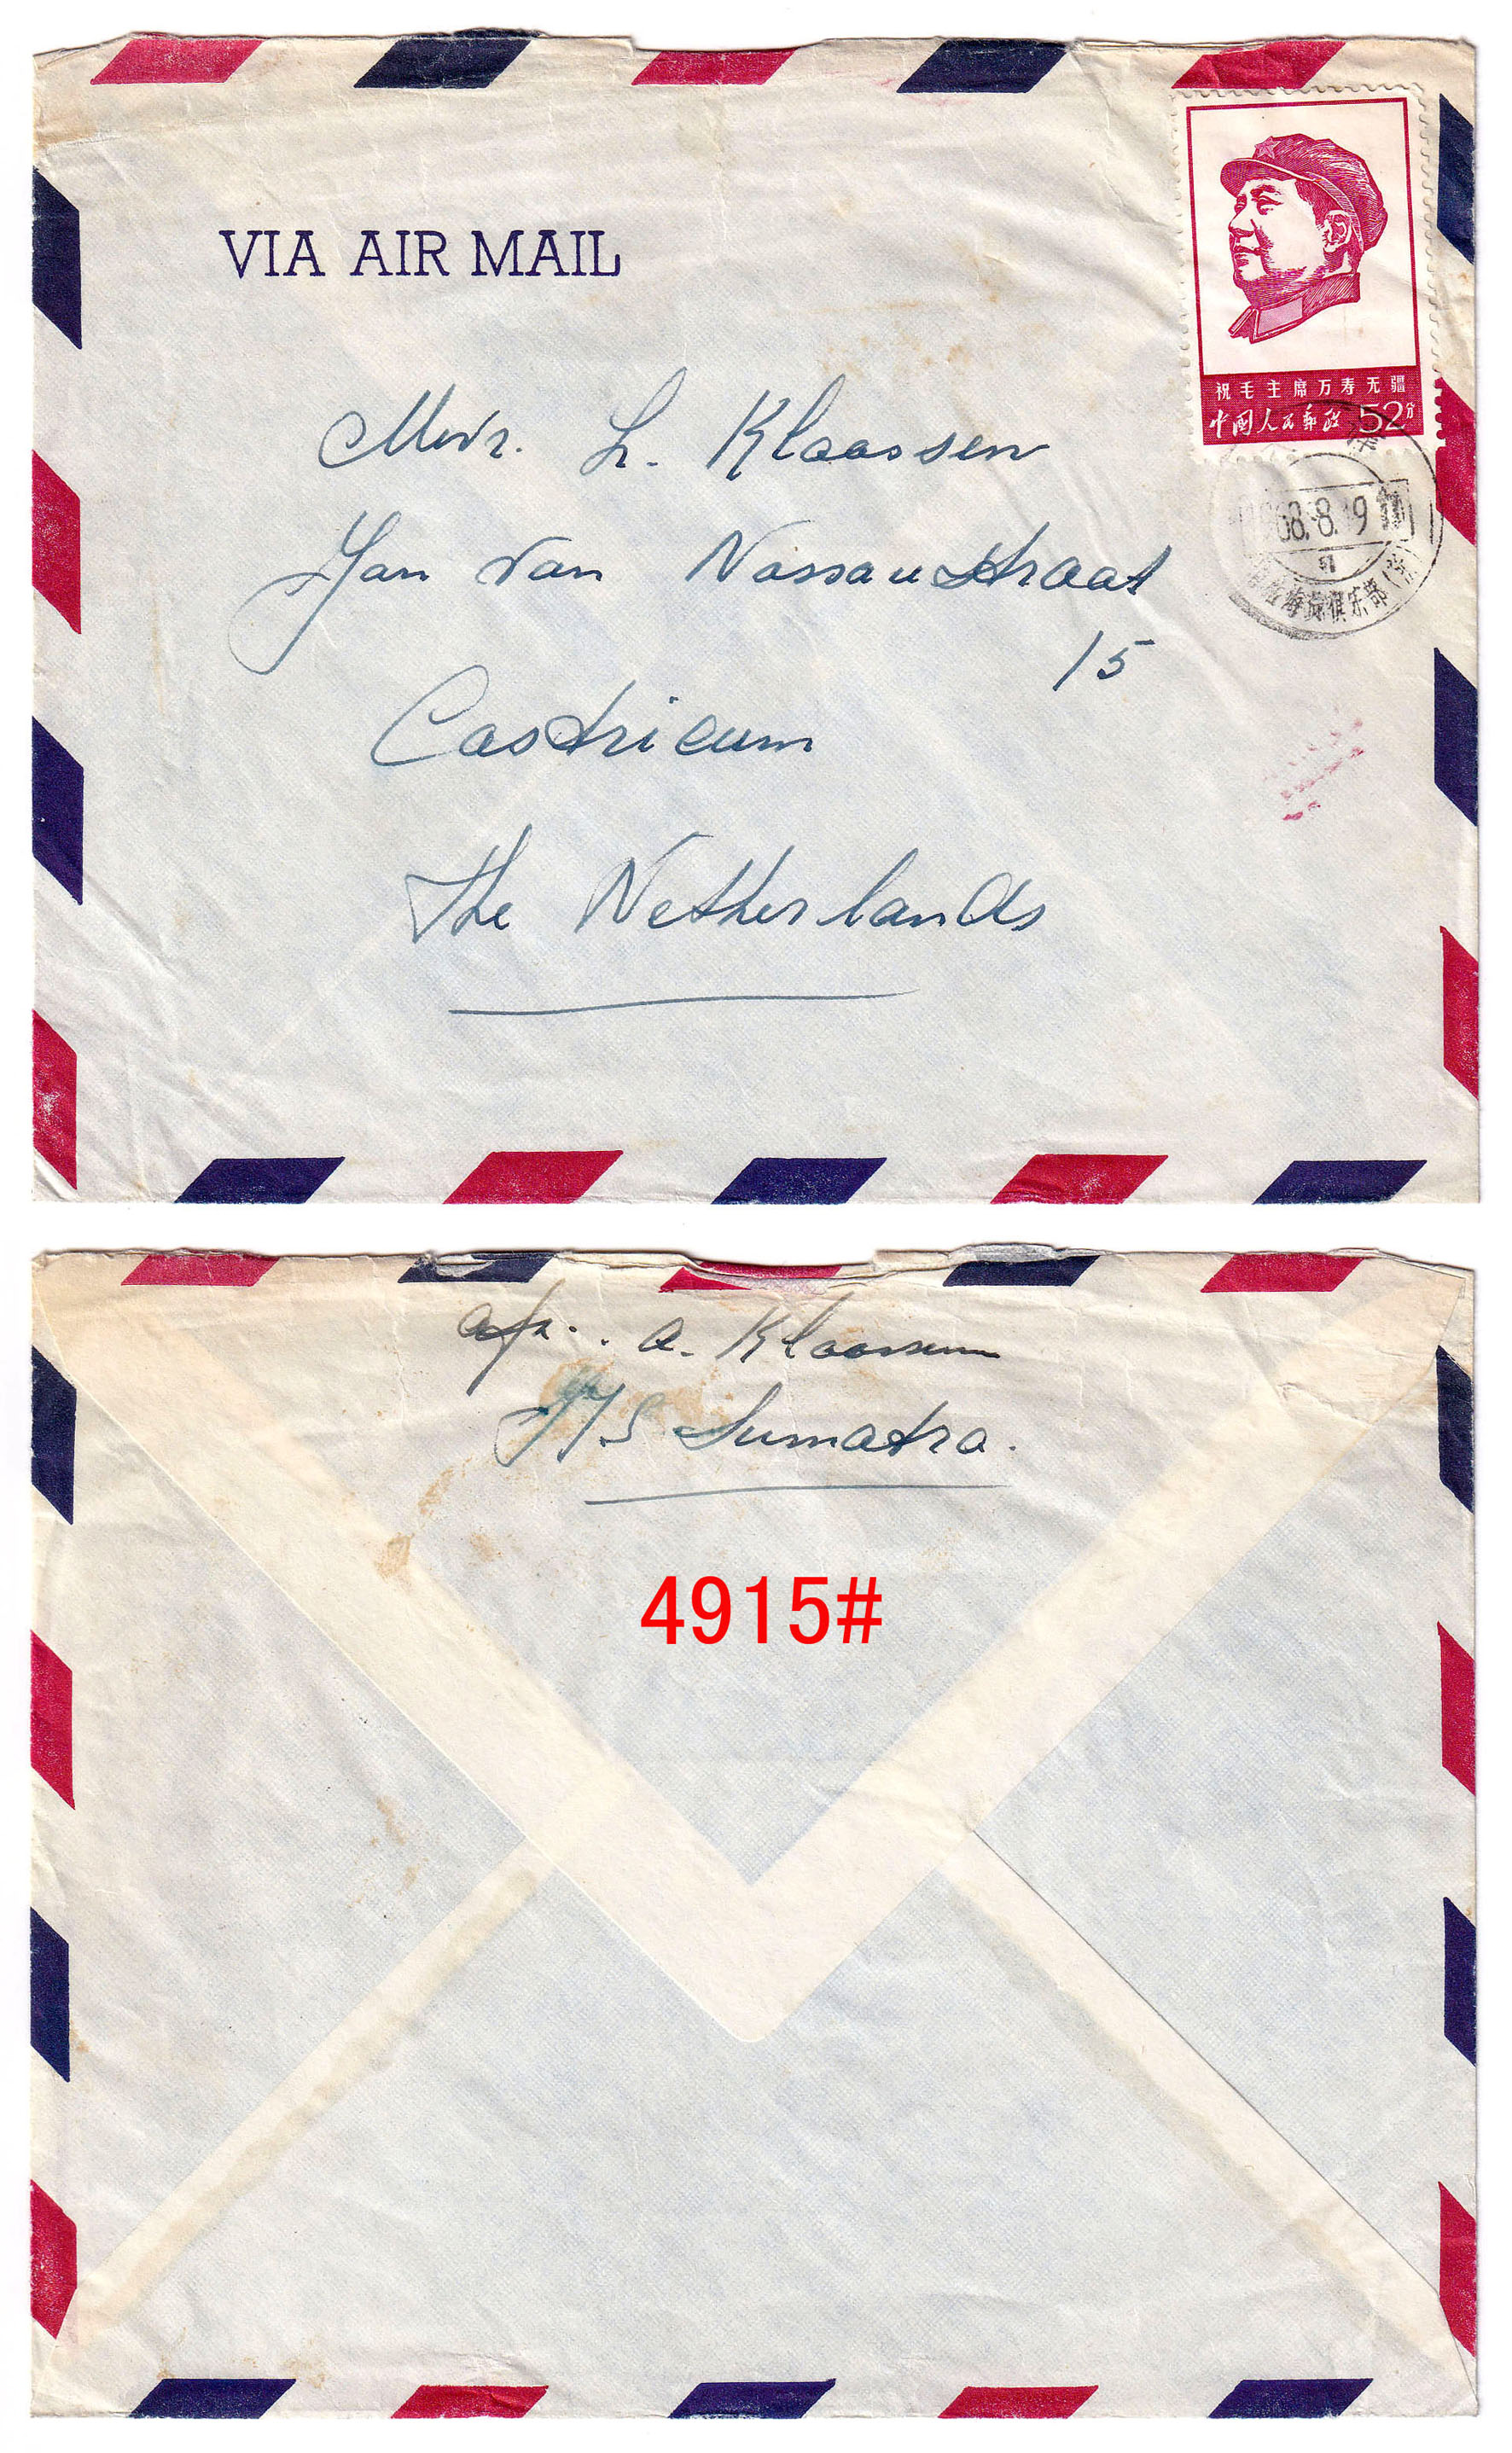 VIA AIR MAIL
祝毛主席万寿无疆
中国人民邮政 52分
津
1968.8.19
海员俱乐部
Mevr. L. Klaassen
Jan van Nassaustraat
15
Castricum
The Netherlands
afz. . A. Klaassen
T/S Sumatra.
4915#